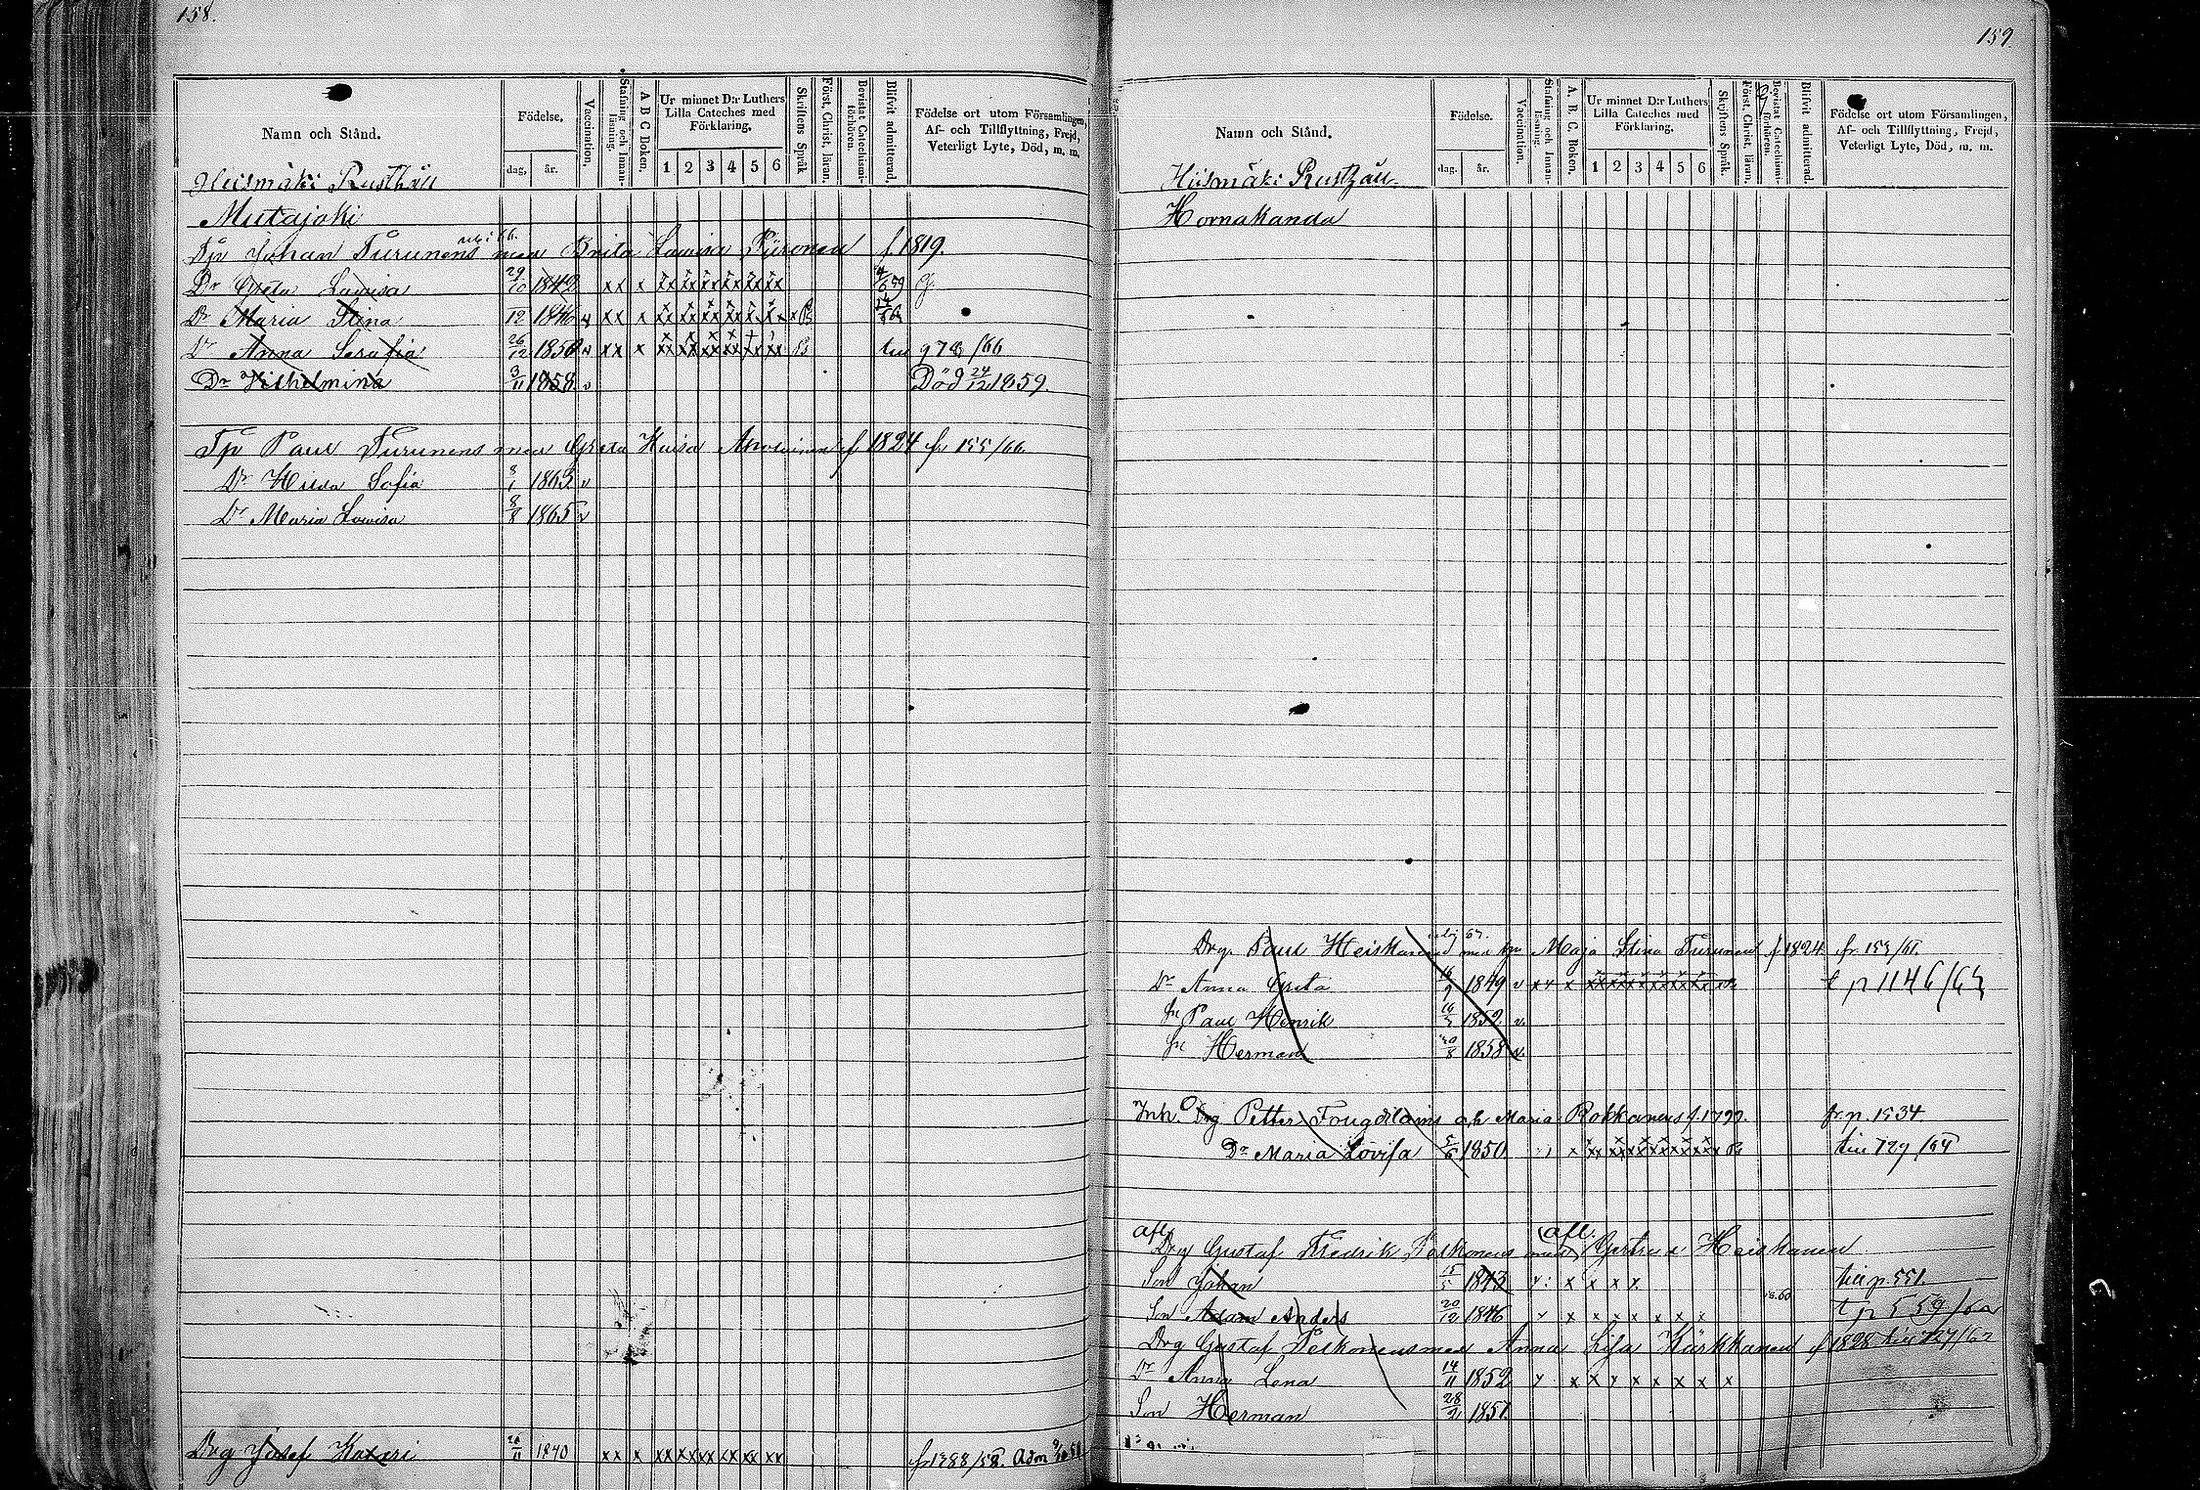 158.
Namn och Stånd.
Födelse.
dag, år.
Vaccination.
Stafning och Innanläsning.
A B C Boken.
Ur minnet D:r Luthers Lilla Cateches med Förklaring.
1 2 3 4 5 6
Skriftens Språk
Först. Christ. läran.
Bevistat Catechismiförhören.
Blifvit admitterad.
Födelse ort utom Församlingen, Af- och Tillflyttning, Frejd, Veterligt Lyte, Död, m. m.
Hiismäki Rusthåll
Mutajoki
Tp Johan Turunens med Brita Lovisa Piironen f. 1819.
Dr Greta Lovisa 29/10 1842 xx x xx xx xx xx xx xx 59 g.
Dr Maria Stina 12 1846 v xx x xx xx xx xx xx xx
Dr Anna Serafia 26/12 1850 v xx x xx xx xx xx xx xx till 978/66
Dr Wilhelmina 3/11 1858. v Död 24/12 1859.
Tp Paul Turunens med Greta Kaisa f 1824 fr 155/66.
Dr Hilda Sofia 8/1 1863 v
Dr Maria Lovisa 8/8 1865 v
Drg Josef 1840 xx x xx xx xx xx xx xx fr 1388/58. Adm
159.
Namn och Stånd.
Födelse.
dag. år.
Vaccination.
Stafning och Innanläsning.
A. B. C. Boken.
Ur minnet D:r Luthers Lilla Cateches med Förklaring.
1 2 3 4 5 6
Skriftens Språk.
Först. Christ. läran.
Bevistat Catechismiförhören.
Blifvit admitterad.
Födelse ort utom Församlingen, Af- och Tillflyttning, Frejd, Veterligt Lyte, Död, m. m.
Hiismäki Rusthåll
Hornakanda
Drg. Paul Heiskanens med Maja Stina Turunen f 1824. fr. 153/61.
Dr Anna Greta 1849 v xx x xx xx xx xx xx xx t p 1146/63
Sn Paul Henrik 1852. v.
Sn Herman 1858 v.
Inh. Drg Petter Fougdtlams och Maria Rokkanens f. 1799. fr. p. 1534.
Dr Maria Lovisa 5/6 1850 x xx xx xx xx xx xx till 729/64
afl. Drg Gustaf Fredrik Pelkonens med (afl.) Gertrud Heiskanen
Son Johan 15/5 1843 x x x x till p. 551.
Son Adam Anders 20/12 1846 x x x x x x x t p 559/60
Drg Gustaf Pelkonens med Anna Lisa Kärkkänen f 1828 till 727/62
Dr Anna Lena 14/11 1852 x x x x x x x x
Son Herman 1857.